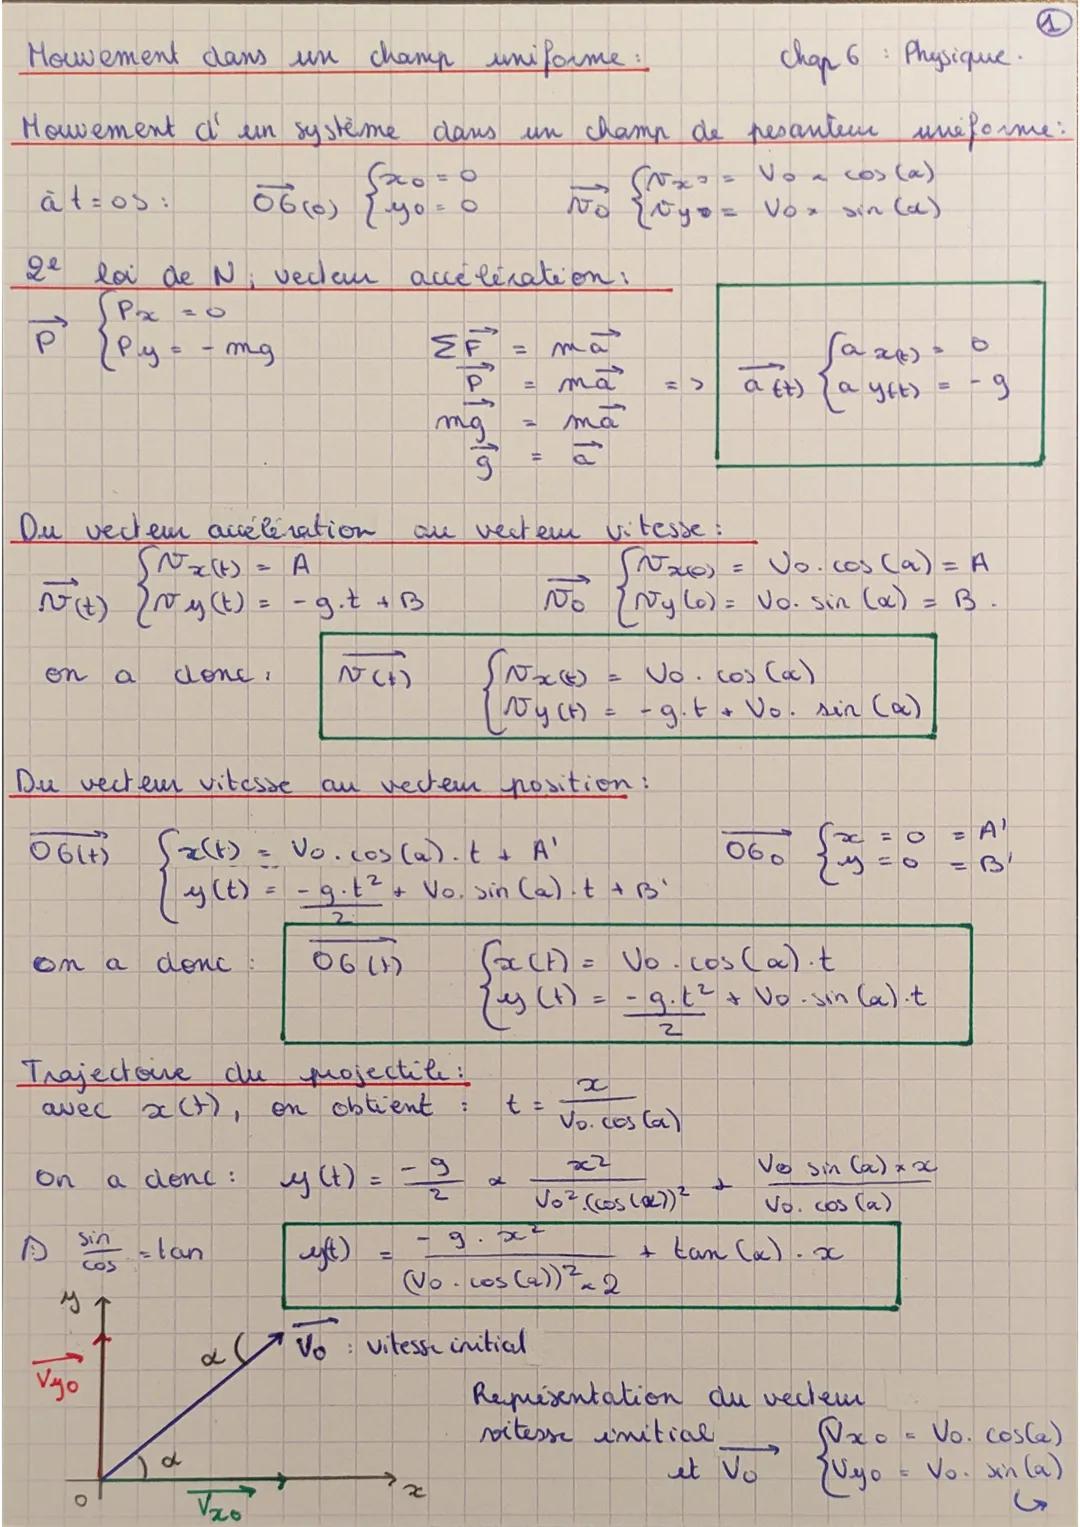 1
Mouvement dans un champ uniforme : chap 6 : Physique.
Mouvement d'un système dans un champ de pesanteur uniforme :
à t = 0s : OG(0) { x0 = 0 v0 { vx0 = V0 × cos(α)
y0 = 0 vy0 = V0 × sin(α)
2e loi de N ; vecteur accélération :
P { Px = 0
Py = - mg
ΣF = ma
P = ma => a(t) { ax(t) = 0
ay(t) = - g
mg = ma
g = a
Du vecteur accélération au vecteur vitesse :
v(t) { vx(t) = A v0 { vx(0) = V0 . cos(α) = A
vy(t) = - g.t + B vy(0) = V0 . sin(α) = B .
on a donc : v(t) { vx(t) = V0 . cos(α)
vy(t) = - g.t + V0 . sin(α)
Du vecteur vitesse au vecteur position :
OG(t) { x(t) = V0 . cos(α) . t + A' OG0 { x = 0 = A'
y(t) = - g.t²/2 + V0 . sin(α) . t + B' y = 0 = B'
on a donc : OG(t) { x(t) = V0 . cos(α) . t
y(t) = - g.t²/2 + V0 . sin(α) . t
Trajectoire du projectile :
avec x(t), on obtient : t = x / V0 . cos(α)
on a donc : y(t) = - g/2 × x² / V0² . (cos(α))² + V0 sin(α) × x / V0 . cos(α)
sin/cos = tan y(t) = - g . x² / (V0 . cos(α))² × 2 + tan(α) . x
y
α V0 : vitesse initial
Vy0
Représentation du vecteur
vitesse initial
et V0 { Vx0 = V0 . cos(α)
Vy0 = V0 . sin(α)
α
0 Vx0 x